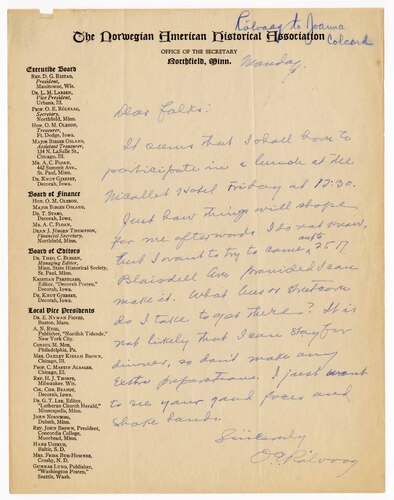 Rölvaag to Joanna
Colcord
The Norwegian American Historical Association
OFFICE OF THE SECRETARY
Northfield, Minn.
Monday.
Executive Board
REV. D. G. RISTAD,
President,
Manitowoc, Wis.
DR. L. M. LARSEN,
Vice President,
Urbana, Ill.
PROF. O. E. RÖLVAAG,
Secretary,
Northfield, Minn.
HON. O. M. OLESON,
Treasurer,
Ft. Dodge, Iowa.
MAJOR BIRGER OSLAND,
Assistant Treasurer,
134 N. LaSalle St.
Chicago, Ill.
MR. A. C. FLOAN,
442 Summit Ave.,
St. Paul, Minn.
DR. KNUT GJERSET,
Decorah, Iowa.
Board of Finance
HON. O. M. OLESON,
MAJOR BIRGER OSLAND,
DR. T. STABO,
Decorah, Iowa.
MR. A. C. FLOAN,
DEAN J. JØRGEN THOMPSON,
Financial Secretary,
Northfield, Minn.
Board of Editors
DR. THEO. C. BLEGEN,
Managing Editor,
Minn. State Historical Society,
St. Paul, Minn.
KRISTIAN PRESTGARD,
Editor, "Decorah Posten,"
Decorah, Iowa.
DR. KNUT GJERSET,
Decorah, Iowa.
Local Vice Presidents
Boston, Mass.
A. N. RYGG,
Publisher, "Nordisk Tidende,"
New York City.
Philadelphia, Pa.
MRS. OAKLEY KISSAM BROWN,
Chicago, Ill.
PROF. C. MARTIN ALSAGER,
Chicago, Ill.
REV. H. J. THORPE,
Milwaukee, Wis.
COL. CHR. BRANDT,
Decorah, Iowa.
DR. G. T. LEE, Editor,
"Lutheran Church Herald,"
Minneapolis, Minn.
JOHN NORTHBY,
Duluth, Minn.
REV. JOHN BROWN, President,
Concordia College,
Moorhead, Minn.
HANS USTRUD,
Baltic, S. D.
MRS. FRIDA BUE-HOMNES,
Crosby, N. D.
GUNNAR LUND, Publisher,
"Washington Posten,"
Seattle, Wash.
Dear Folks:
It seems that I shall have to
participate in a lunch at the
Nicollet Hotel Friday at 12:30.
Just how things will shape
for me afterwards I do not know,
but I want to try to come out to 2517
Blaisdell Ave provided I can
make it. What bus or streetcar
do I take to get there? It is
not likely that I can stay for
dinner, so don't make any
extra preparations. I just want
to see your good faces and
shake hands.
Sincerely
O. E. Rölvaag